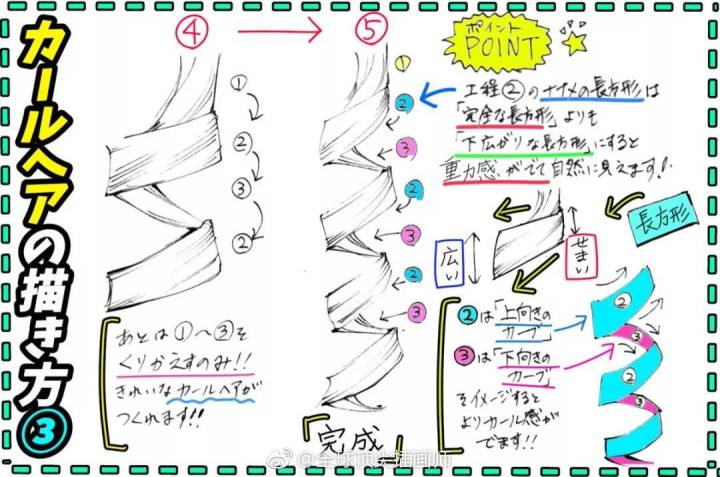 カールヘアの描き方③
④
⑤
①
②
③
②
あとは①〜③を
くりかえすのみ!!
きれいなカールヘアが
つくれます!!
①
②
③
②
③
②
③
「完成」
ポイント
POINT
工程②のナナメの長方形は
「完全な長方形」よりも
「下広がりな長方形」にすると
重力感がでて自然に見えます!!
長方形
広い
せまい
②は「上向きの
カーブ」
③は「下向きの
カーブ」
をイメージすると
よりカール感が
でます!!
②
③
②
③
@全球顶尖插画师